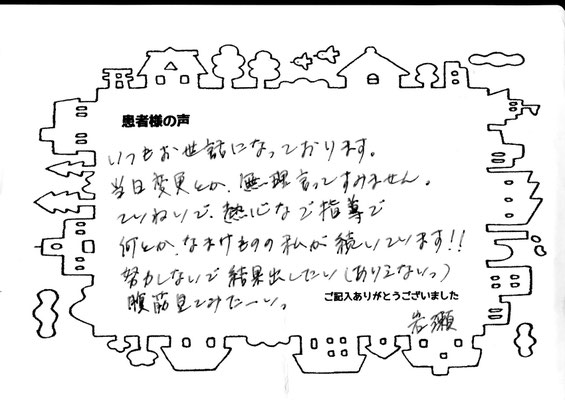 患者様の声
いつもお世話になっております。
当日変更とか、無理言ってすみません。
ていねいで、熱心なご指導で
何とか、なまけものの私が続いています!!
努力しないで結果出したい(ありえないっ)
腹筋見てみたーい。
ご記入ありがとうございました
岩瀬